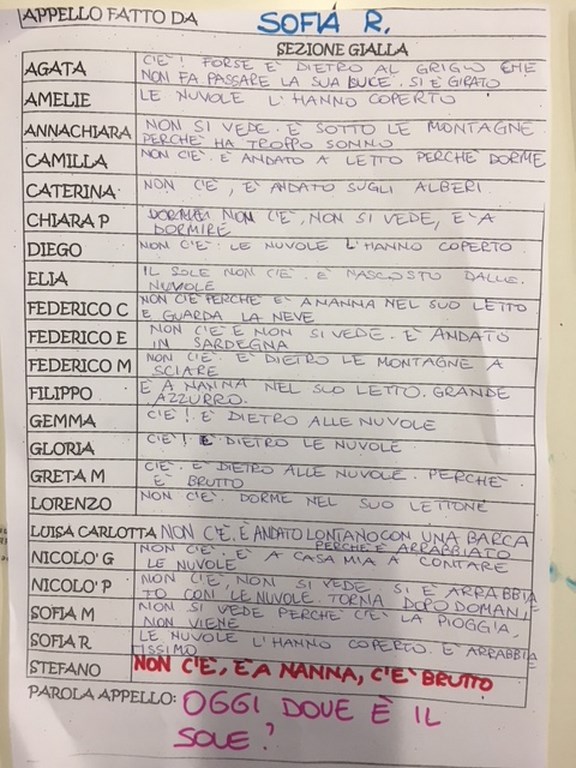 APPELLO FATTO DA SOFIA R.
SEZIONE GIALLA
AGATA C'È! FORSE È DIETRO AL GRIGIO CHE
NON FA PASSARE LA SUA LUCE. SI È GIRATO
AMELIE LE NUVOLE L'HANNO COPERTO
ANNACHIARA NON SI VEDE. È SOTTO LE MONTAGNE
PERCHÈ HA TROPPO SONNO
CAMILLA NON C'È. È ANDATO A LETTO PERCHÈ DORME
CATERINA NON C'È, È ANDATO SUGLI ALBERI
CHIARA P NON C'È, NON SI VEDE, È A
DORMIRE
DIEGO NON C'È. LE NUVOLE L'HANNO COPERTO
ELIA IL SOLE NON C'È. È NASCOSTO DALLE
NUVOLE
FEDERICO C NON C'È PERCHÈ È A NANNA NEL SUO LETTO
E GUARDA LA NEVE
FEDERICO E NON C'È E NON SI VEDE. È ANDATO
IN SARDEGNA
FEDERICO M NON C'È. È DIETRO LE MONTAGNE A
SCIARE
FILIPPO È A NANNA NEL SUO LETTO. GRANDE
AZZURRO.
GEMMA C'È! È DIETRO ALLE NUVOLE
GLORIA C'È! È DIETRO LE NUVOLE
GRETA M C'È. È DIETRO ALLE NUVOLE. PERCHÈ
È BRUTTO
LORENZO NON C'È. DORME NEL SUO LETTONE
LUISA CARLOTTA NON C'È. È ANDATO LONTANO CON UNA BARCA
PERCHÈ È ARRABBIATO
NICOLO' G NON C'È. È A CASA MIA A CONTARE
LE NUVOLE
NICOLO' P NON C'È, NON SI VEDE. SI È ARRABBIA
TO CON LE NUVOLE. TORNA DOPO DOMANI
SOFIA M NON SI VEDE PERCHÈ C'È LA PIOGGIA,
NON VIENE
SOFIA R LE NUVOLE L'HANNO COPERTO. È ARRABBIA
TISSIMO
STEFANO NON C'È, È A NANNA, C'È BRUTTO
PAROLA APPELLO: OGGI DOVE È IL
SOLE?